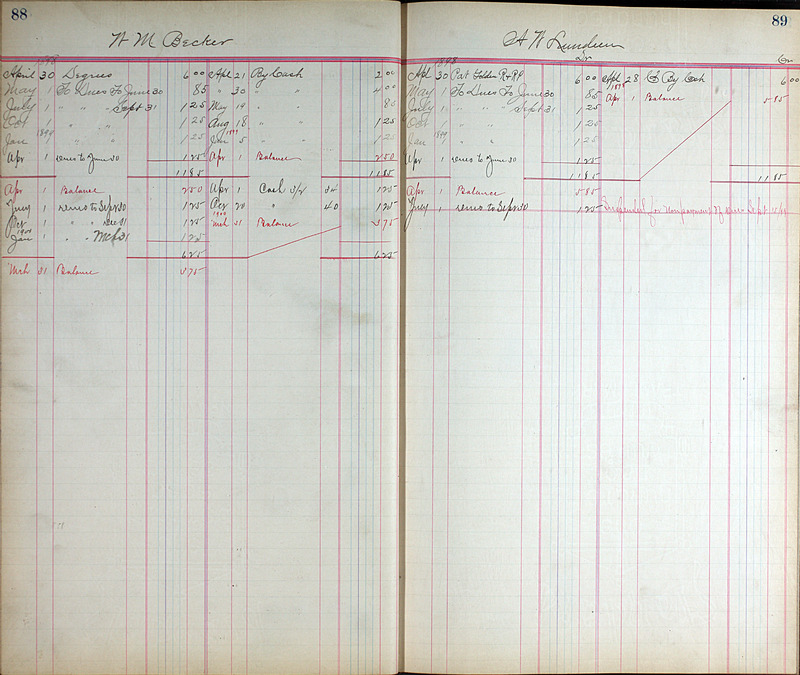 88
W M Becker
1898
April 30 Degrees 6 00 Apl 21 By Cash 2 00
May 1 To Dues To June 30 85 " 30 " " 4 00
July 1 " " " Sept 31 1 25 May 19 " " 85
Oct 1 " " 1 25 Aug 18 " " 1 25
1899 1899
Jan 1 " " 1 25 Jan 5 " " 1 25
Apr 1 Dues to June 30 1 25 Apr 1 Balance 2 50
11 85 11 85
Apr 1 Balance 2 50 Apr 1 Cash 34 1 25
July 1 Dues to Sepr 30 1 25 Oct 20 " 40 1 25
1900
Oct 1 " " Dec 31 1 25 Mch 31 Balance 3 75
1900
Jan 1 " " Mch 31 1 25
6 25 6 25
Mch 31 Balance 3 75
89
A W Lundeen
1898 Dr Cr
Apl 30 6 00 Apl 28 By Cash 6 00
1899
May 1 To Dues To June 30 85 Apr 1 Balance 5 85
July 1 " " " Sept 31 1 25
Oct 1 " " 1 25
1899
Jan 1 " " 1 25
Apr 1 Dues to June 30 1 25
11 85 11 85
Apr 1 Balance 5 85
July 1 Dues to Sepr 30 1 25 Suspended for nonpayment of dues Sept